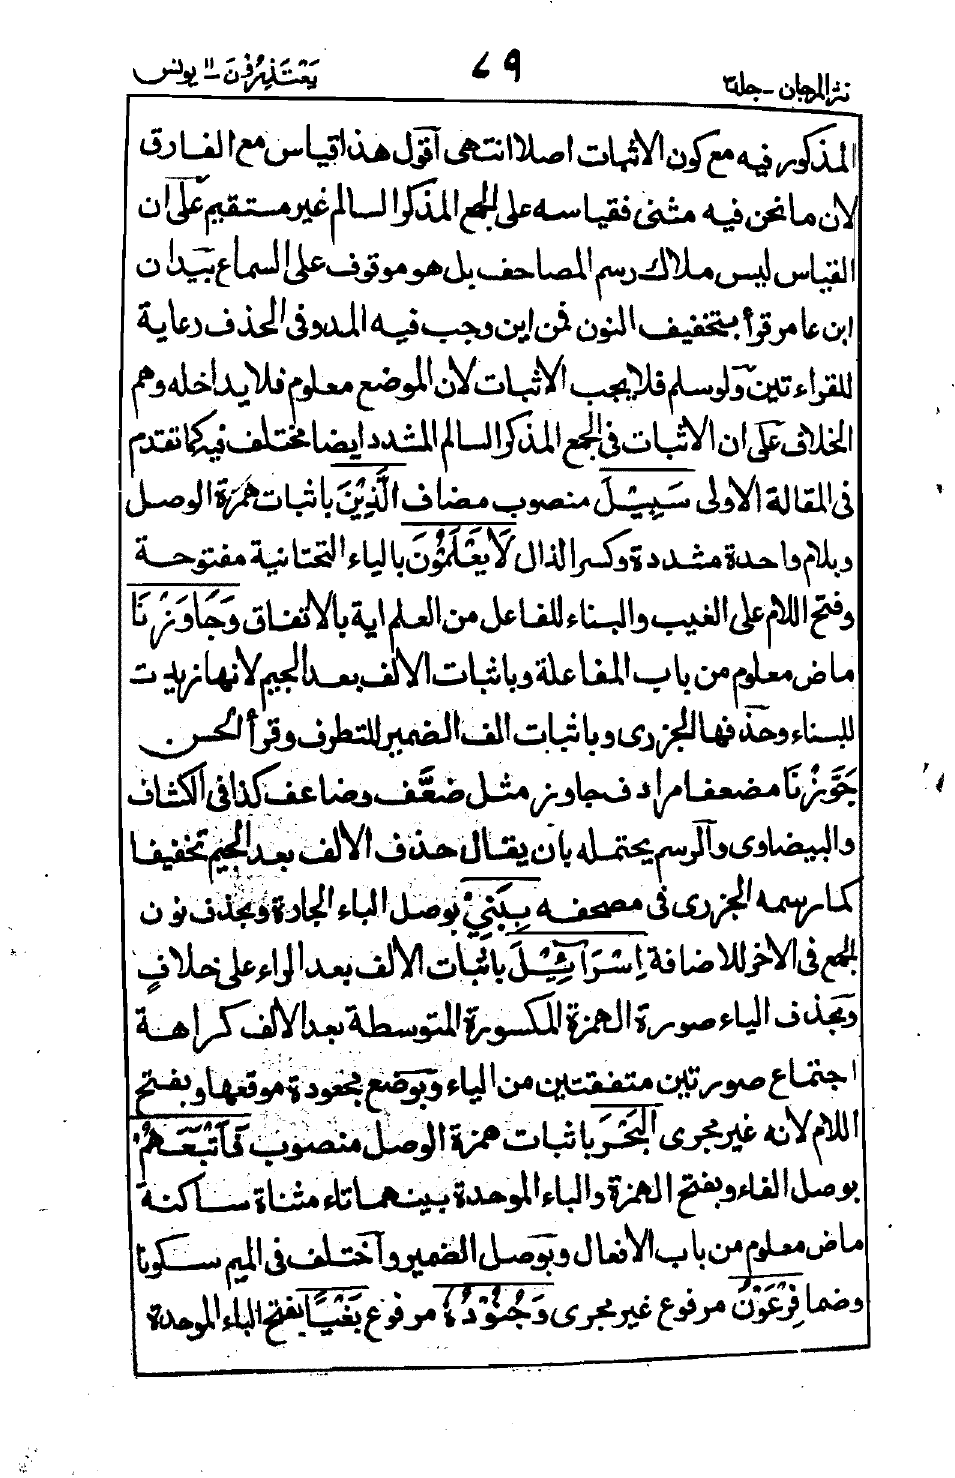 نثر المرجان – جلد ٣
٧٩
يعتذرون ۱۱ يونس
المذكور فيه مع كون الاثبات اصلا انتهى اقول هذا قياس مع الفارق
لان ما نحن فيه مثنى فقياسه على الجمع المذكر السالم غير مستقيم على ان
القياس ليس ملاك رسم المصاحف بل هو موقوف على السماع بيد ان
ابن عامر قرأ بتخفيف النون فمن اين وجب فيه المد وفى الحذف رعاية
للقراءتين ولو سلم فلا يجب الاثبات لان الموضع معلوم فلا يداخله وهم
الخلاف على ان الاثبات فى الجمع المذكر السالم المشدد ايضا مختلف فيه كما تقدم
فى المقالة الاولى سَبِيْلَ منصوب مضاف الَّذِيْنَ باثبات همزة الوصل
وبلام واحدة مشددة وكسر الذال لَا يَعْلَمُوْنَ بالياء التحتانية مفتوحة
وفتح اللام على الغيب والبناء للفاعل من العلم اية بالاتفاق وَجَاوَزْنَا
ماض معلوم من باب المفاعلة وباثبات الالف بعد الجيم لانها زيدت
للبناء وحذفها الجزرى وباثبات الف الضمير للتطرف وقرأ الحسن
جَوَّزْنَا مضعفا مرادف جاوز مثل ضعَّف وضاعف كذا فى الكشاف
والبيضاوى والرسم يحتمله بان يقال حذف الالف بعد الجيم تخفيفا
كما رسمه الجزرى فى مصحفه بِبَنِيْ بوصل الباء الجارة وبحذف نون
الجمع فى الاخر للاضافة اِسْرَآئِيْلَ باثبات الالف بعد الراء على خلافٍ
وبحذف الياء صورة الهمزة المكسورة المتوسطة بعد الالف كراهة
اجتماع صورتين متفقتين من الياء وبوضع مجعودة موقعها وبفتح
اللام لانه غير مجرى الْبَحْرَ باثبات همزة الوصل منصوب فَاَتْبَعَهُمْ
بوصل الفاء وبفتح الهمزة والباء الموحدة بينهما تاء مثناة ساكنة
ماض معلوم من باب الافعال وبوصل الضمير واختلف فى الميم سكونا
وضما فِرْعَوْنُ مرفوع غير مجرى وَجُنُوْدُهٗ مرفوع بَغْيًا بفتح الباء الموحدة